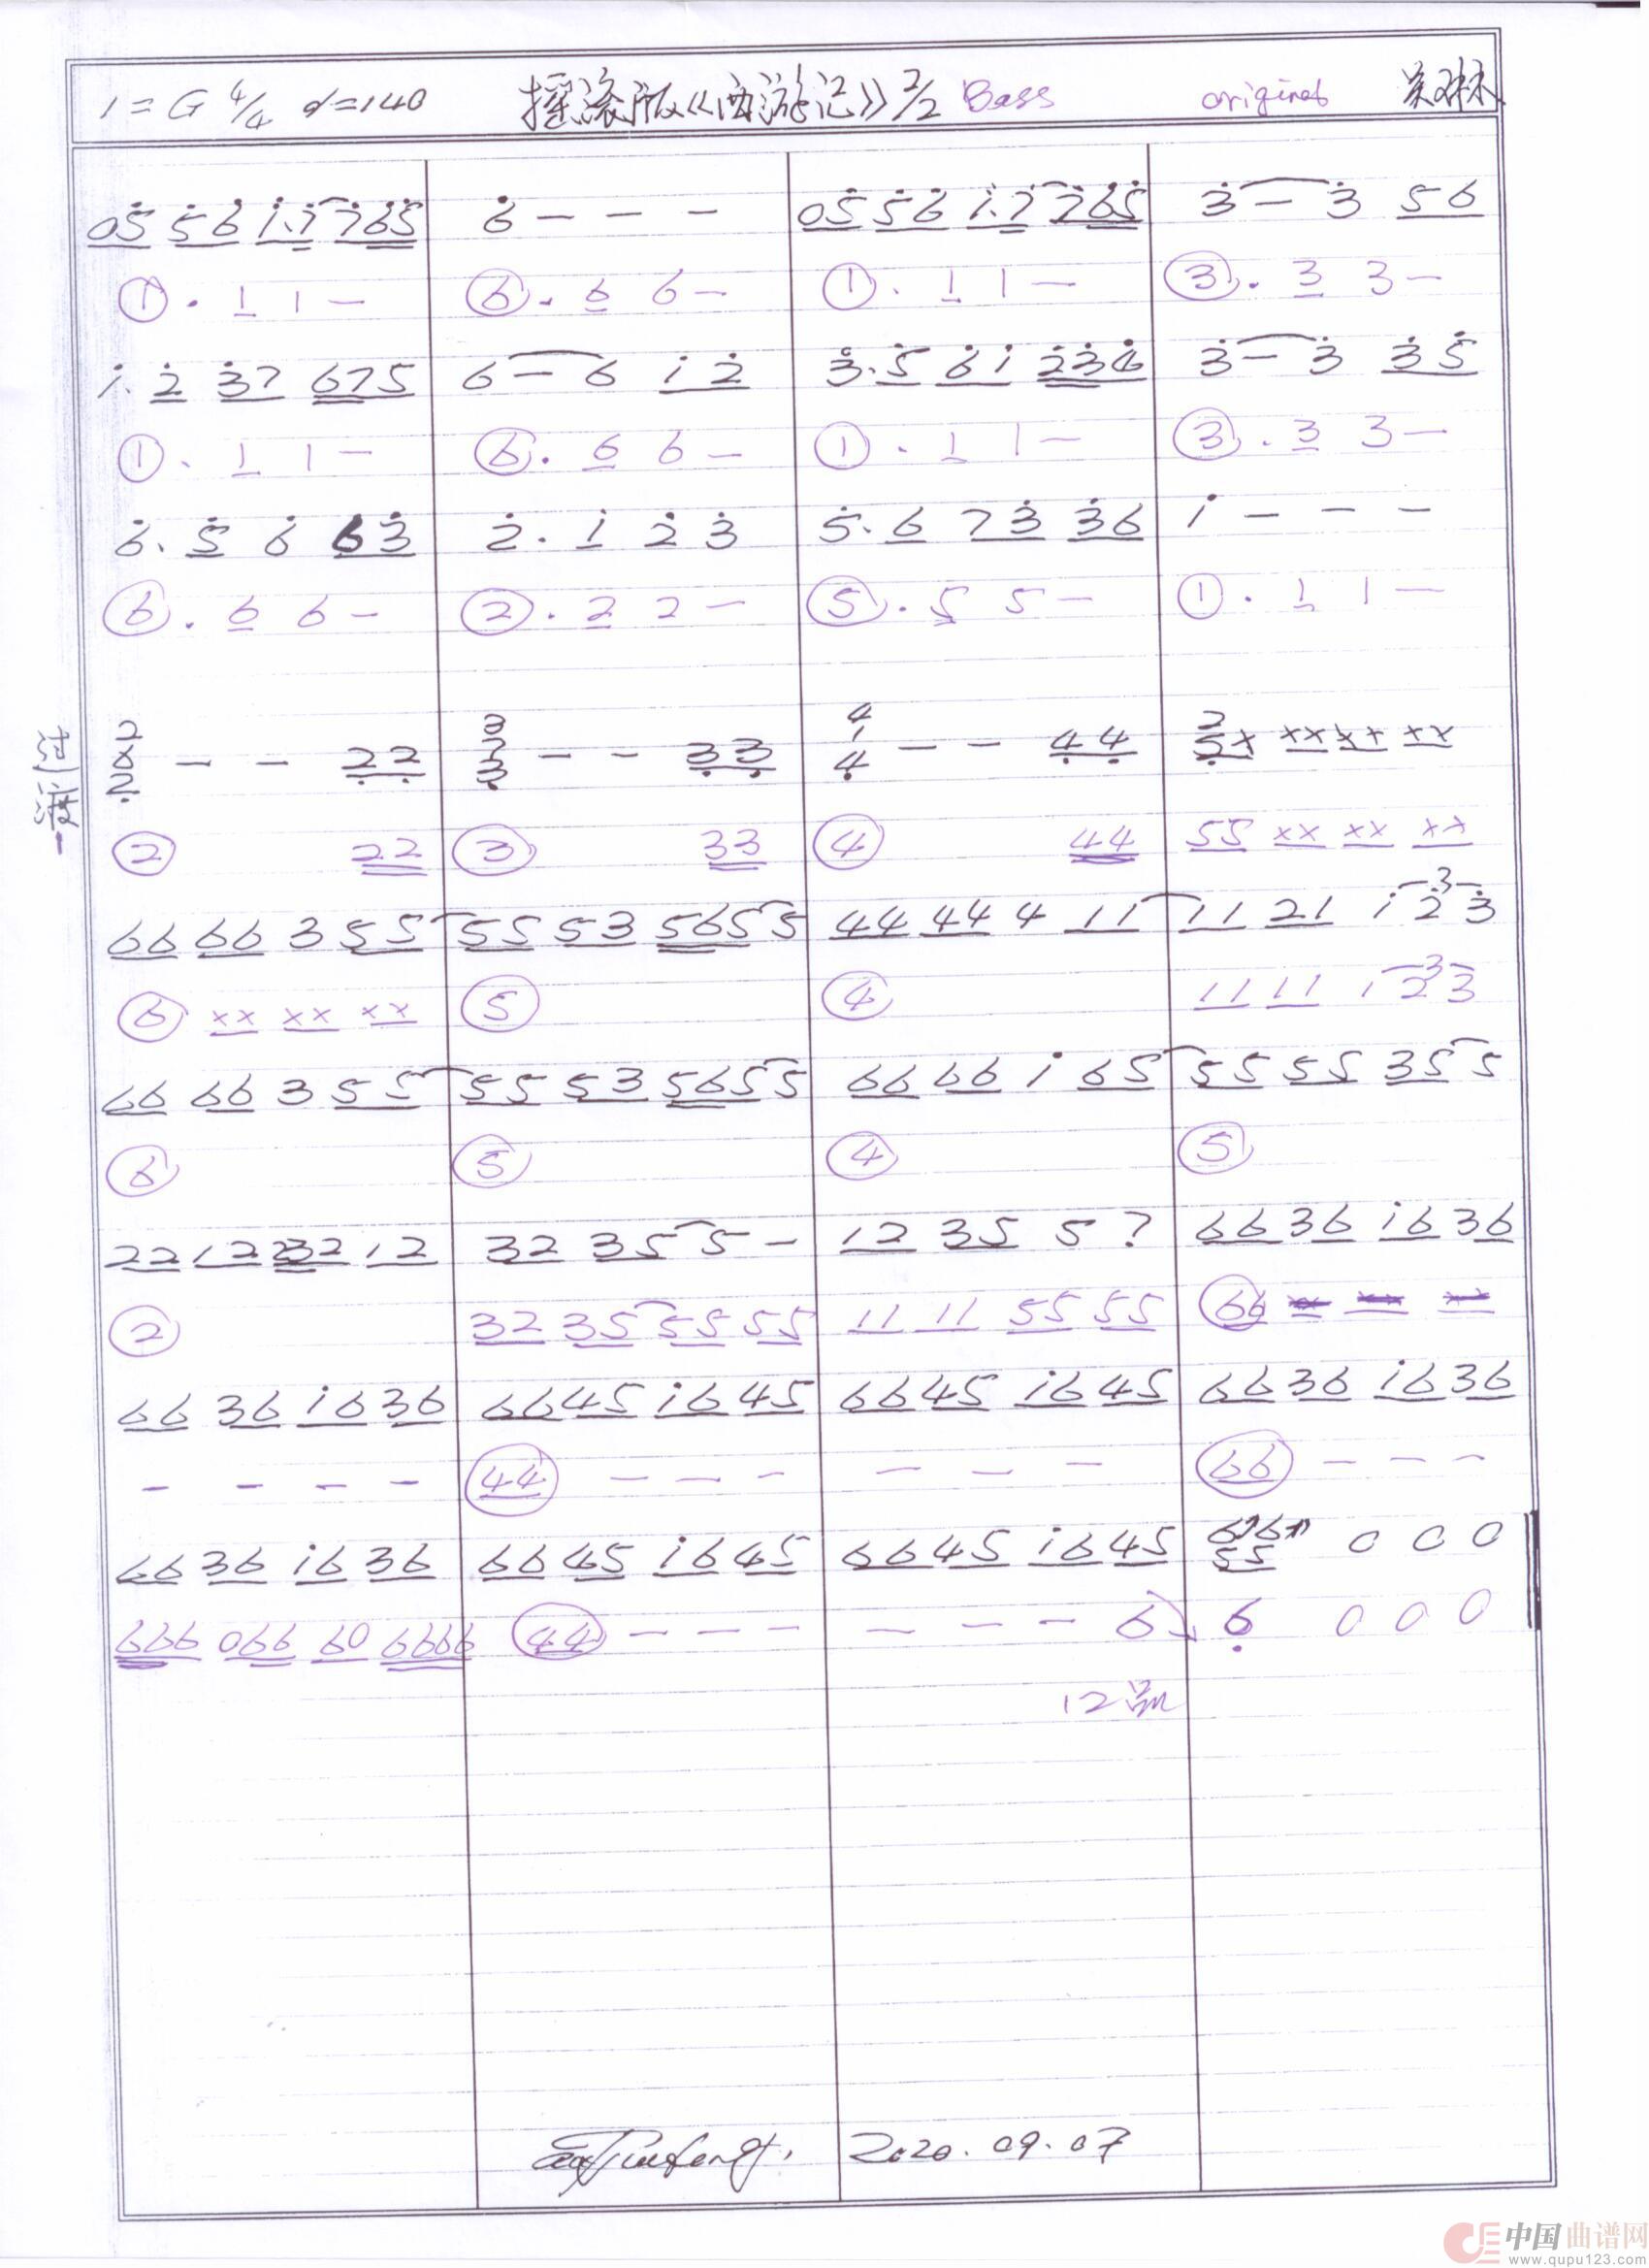 1=G 4/4 ♩=140 摇滚版《西游记》2/2 Bass original 吴琳
05 56 1.7 765 | 6 - - - | 05 56 1.7 765 | 3 - 3 56
① . 1 1 - | ⑥ . 6 6 - | ① . 1 1 - | ③ . 3 3 -
1. 2 37 675 | 6 - 6 12 | 3. 5 61 236 | 3 - 3 35
① . 1 1 - | ⑥ . 6 6 - | ① . 1 1 - | ③ . 3 3 -
6. 5 6 63 | 2 . 1 2 3 | 5. 6 73 36 | 1 - - -
⑥ . 6 6 - | ② . 2 2 - | ⑤ . 5 5 - | ① . 1 1 -
- - 22 | 3 7 3 - - 33 | 4 1 4 - - 44 | 2 5x xx xx xx
② 22 | ③ 33 | ④ 44 | 55 xx xx xx
66 66 3 55 | 55 53 565 5 | 44 44 4 11 | 11 21 1 2 3 3
⑥ xx xx xx | ⑤ | ④ | 11 11 1 2 3 3
66 66 3 55 | 55 53 565 5 | 66 66 1 65 | 55 55 35 5
⑥ | ⑤ | ④ | ⑤
22 12 232 12 | 32 35 5 - | 12 35 5 7 | 66 36 16 36
② | 32 35 55 55 | 11 11 55 55 | 66
66 36 16 36 | 66 45 16 45 | 66 45 16 45 | 66 36 16 36
- - - - | 44 - - - | - - - | 66 - - -
66 36 16 36 | 66 45 16 45 | 66 45 16 45 | 55 0 0 0
666 066 60 6666 | 44 - - - | - - - 6 | 6 0 0 0
12品
2020.09.07
中国曲谱网
www.qupu123.com